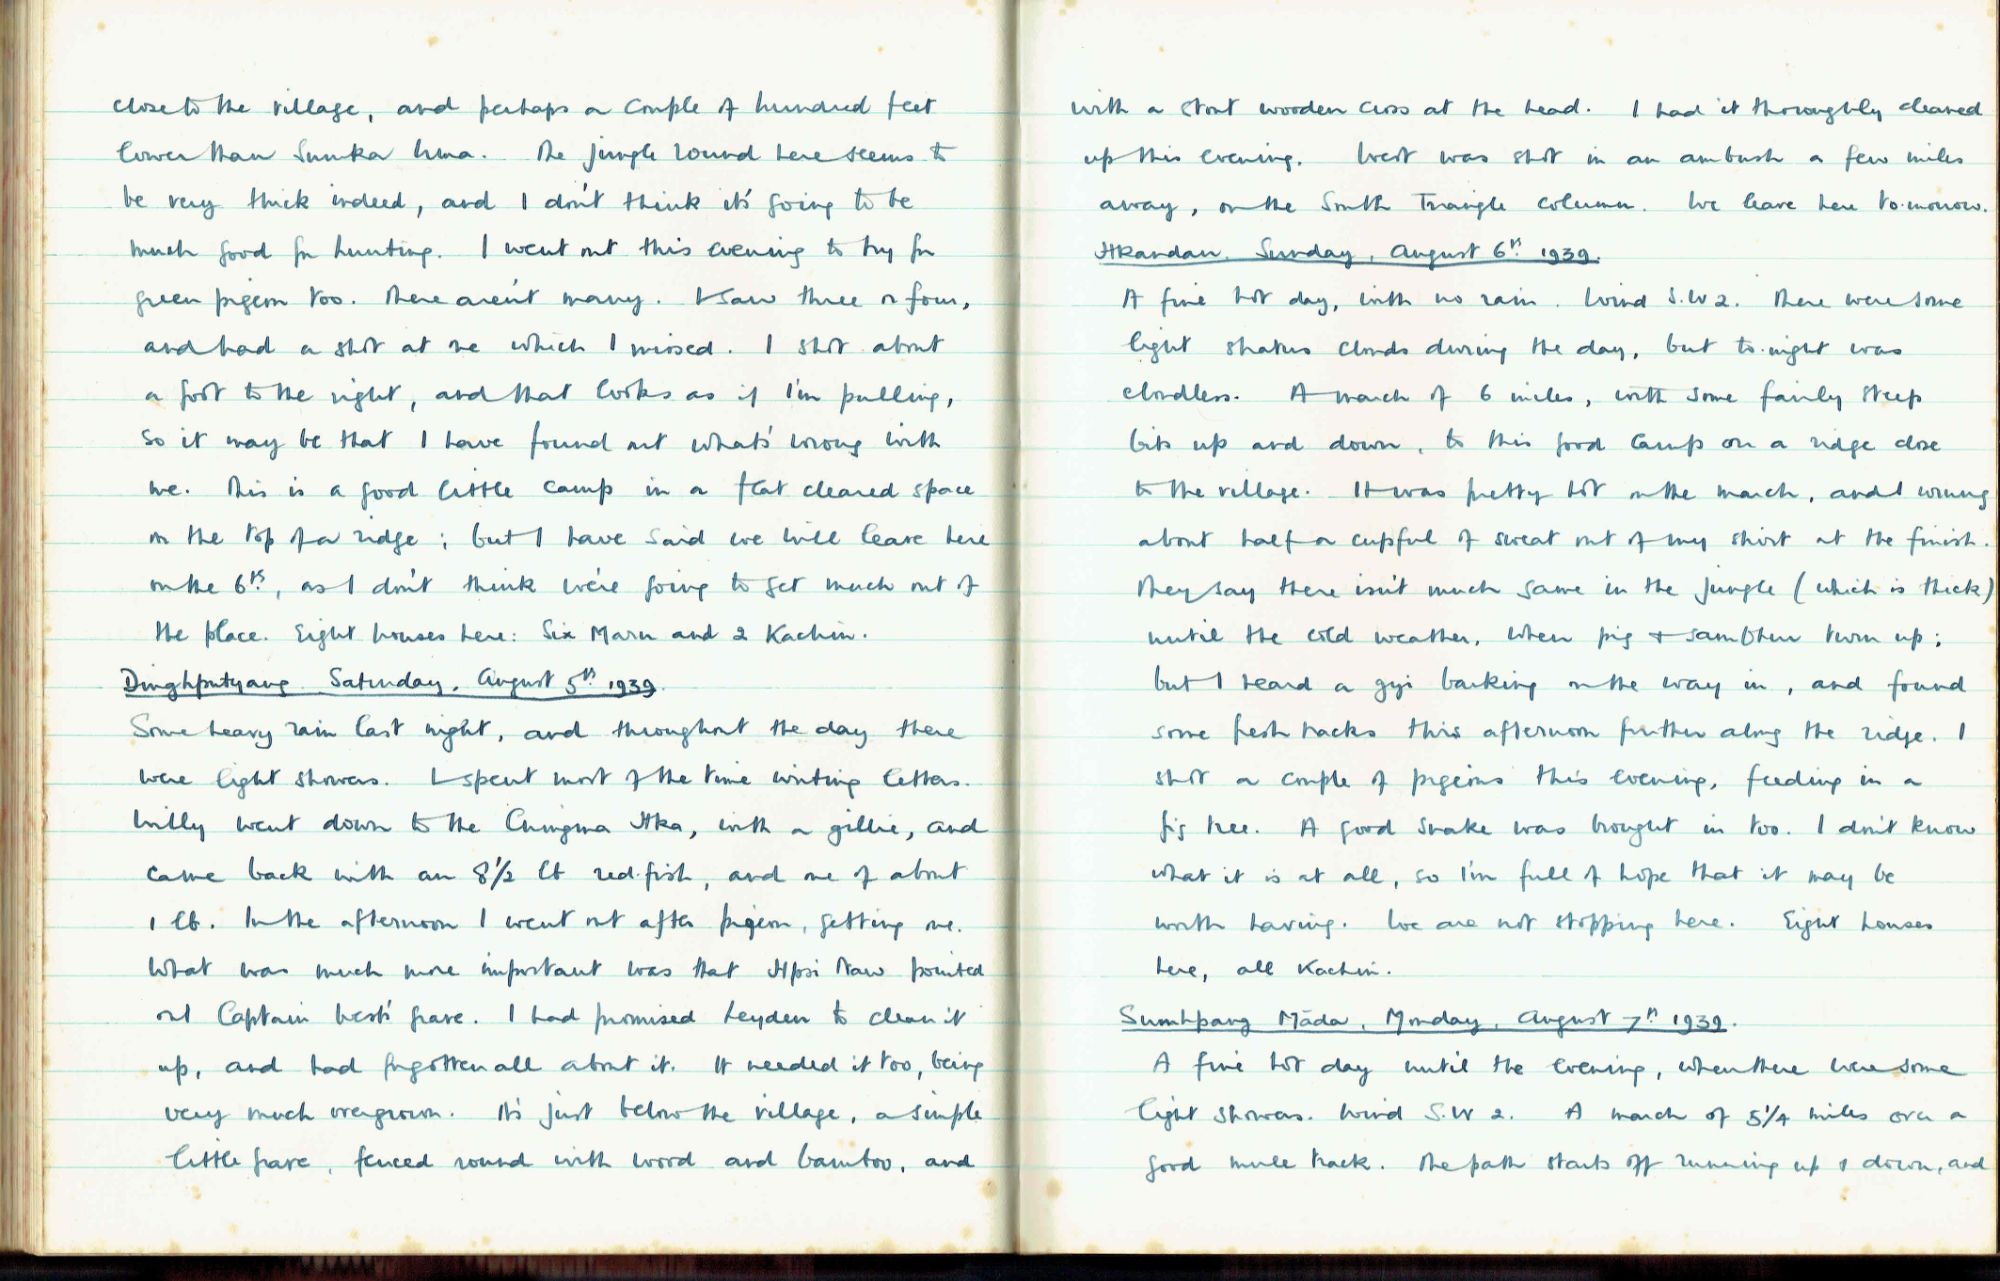 close to the village, and perhaps a couple of hundred feet
lower than Sumka Uma. The jungle round here seems to
be very thick indeed, and I don't think it's going to be
much good for hunting. I went out this evening to try for
green pigeon too. There aren't many. I saw three or four,
and had a shot at one which I missed. I shot about
a foot to the right, and that looks as if I'm pulling,
so it may be that I have found out what's wrong with
me. This is a good little camp in a flat cleared space
on the top of a ridge; but I have said we will leave here
on the 6th, as I don't think we're going to get much out of
the place. Eight houses here: Six Maru and 2 Kachin.
Dinghputyang Saturday, August 5th 1939.
Some heavy rain last night, and throughout the day there
were light showers. I spent most of the time writing letters.
Willy went down to the Hka, with a gillie, and
came back with an 8 1/2 lb red-fish, and one of about
1 lb. In the afternoon I went out after pigeon, getting one.
What was much more important was that Hpsi Naw pointed
out Captain West's grave. I had promised Leyden to clean it
up, and had forgotten all about it. It needed it too, being
very much overgrown. It's just below the village, a simple
little grave, fenced round with wood and bamboo, and
with a stout wooden cross at the head. I had it thoroughly cleaned
up this evening. West was shot in an ambush a few miles
away, on the South Triangle column. We leave here to-morrow.
Hkandau. Sunday, August 6th 1939.
A fine hot day, with no rain. Wind S.W 2. There were some
light stratus clouds during the day, but to-night was
cloudless. A march of 6 miles, with some fairly steep
bits up and down, to this good camp on a ridge close
to the village. It was pretty hot on the march, and I wrung
about half a cupful of sweat out of my shirt at the finish.
They say there isn't much game in the jungle (which is thick)
until the cold weather, when pig + sambhur turn up;
but I heard a gyi barking on the way in, and found
some fresh tracks this afternoon further along the ridge. I
shot a couple of pigeons this evening, feeding in a
fig tree. A good snake was brought in too. I don't know
what it is at all, so I'm full of hope that it may be
worth having. We are not stopping here. Eight houses
here, all Kachin.
Sumhpang Māda, Monday, August 7th 1939.
A fine hot day until the evening, when there were some
light showers. Wind S.W 2. A march of 5 1/4 miles over a
good mule track. The path starts off running up & down, and